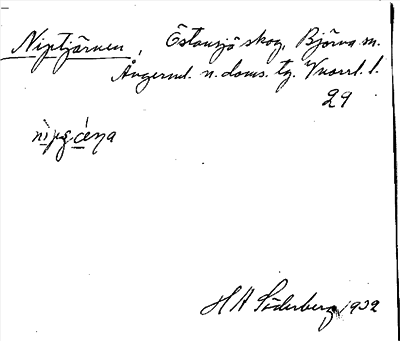 Niptjärnen, Östansjö skog, Björna sn.
Ångerml. n. doms. tg. Vnorrl. l.
29
H A Söderberg 1932